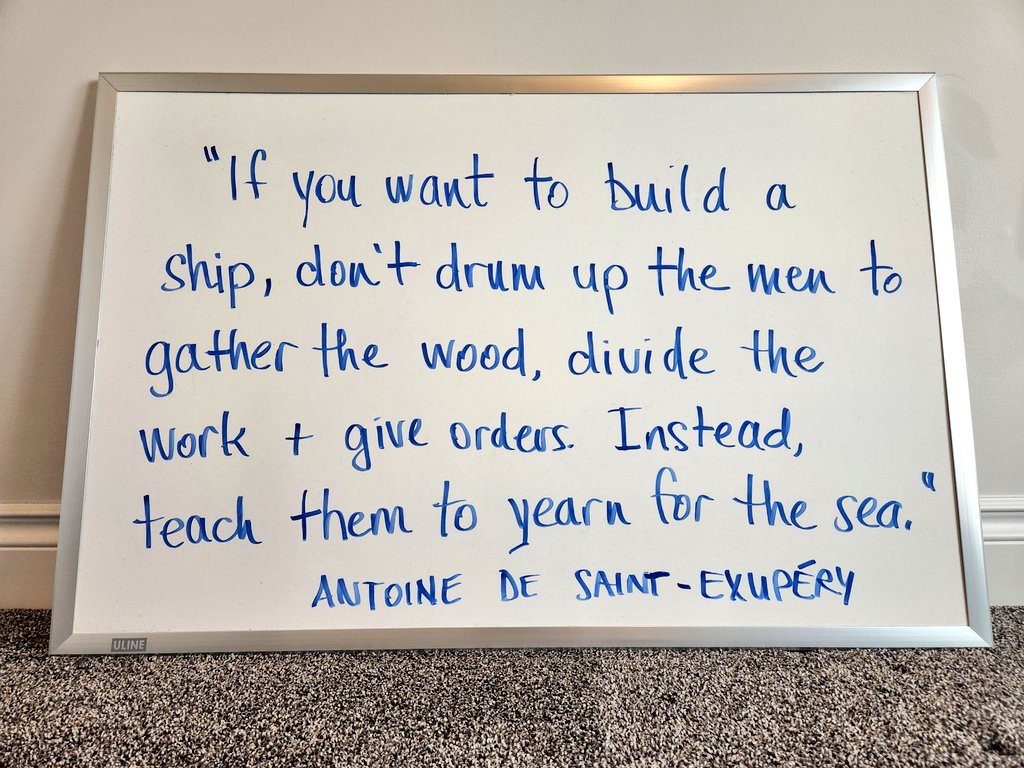 "If you want to build a
ship, don't drum up the men to
gather the wood, divide the
work + give orders. Instead,
teach them to yearn for the sea."
ANTOINE DE SAINT-EXUPÉRY
ULINE